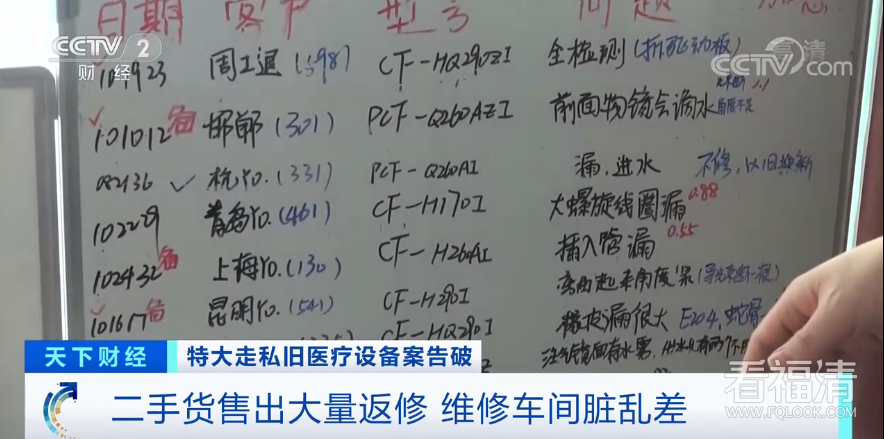 日期 客户 型号 问题
CCTV 2
财经
CCTV.com 高清
104923 周工退 (398) CF-HQ290ZI 全检测 (拆配动板)
101012 备 邯郸 (301) PCF-Q260AZI 前面物镜会滴水
杭州. (331) PCF-Q260AI 漏,进水 不修,以旧换新
102229 青岛 (461) CF-H170I 大螺旋线圈漏 0.88
102432 备 上海 (130) CF-H260AI 插入管漏 0.55
弯曲起来角度紧
101617 备 昆明 (541) CF-H290I 橡皮漏很大 E204,蛇骨
天下财经 特大走私旧医疗设备案告破
二手货售出大量返修 维修车间脏乱差
看福清
WWW.FQLOOK.COM